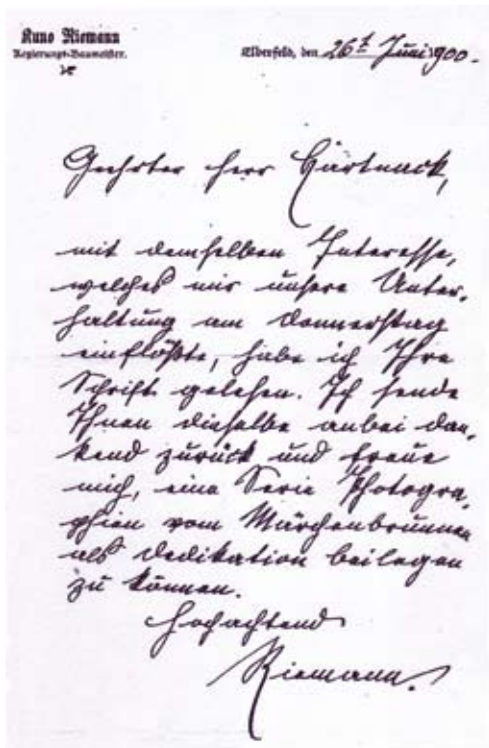 Kuno Riemann
Regierungs-Baumeister.
Elberfeld, den 26t Juni 1900.
Geehrter Herr Härtnack,
mit demselben Interesse,
welches mir unsere Unter-
haltung am Donnerstag
einflößte, habe ich Ihre
Schrift gelesen. Ich sende
Ihnen dieselbe anbei dan-
kend zurück und freue
mich, eine Serie Photogra-
phien vom Märchenbrunnen
als Dedikation beilegen
zu können.
Hochachtend
Riemann.